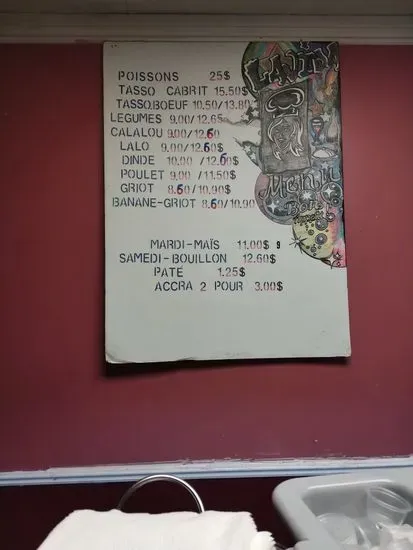 POISSONS 25$
TASSO CABRIT 15.50$
TASSO.BOEUF 10.50/13.80
LEGUMES 9.00/12.65
CALALOU 9.00/12.60
LALO 9.00/12.60$
DINDE 10.00/12.60$
POULET 9.00/11.50$
GRIOT 8.60/10.90$
BANANE-GRIOT 8.60/10.90
MARDI-MAÏS 11.00$ 9
SAMEDI-BOUILLON 12.60$
PATÉ 1.25$
ACCRA 2 POUR 3.00$
Menu
Bon